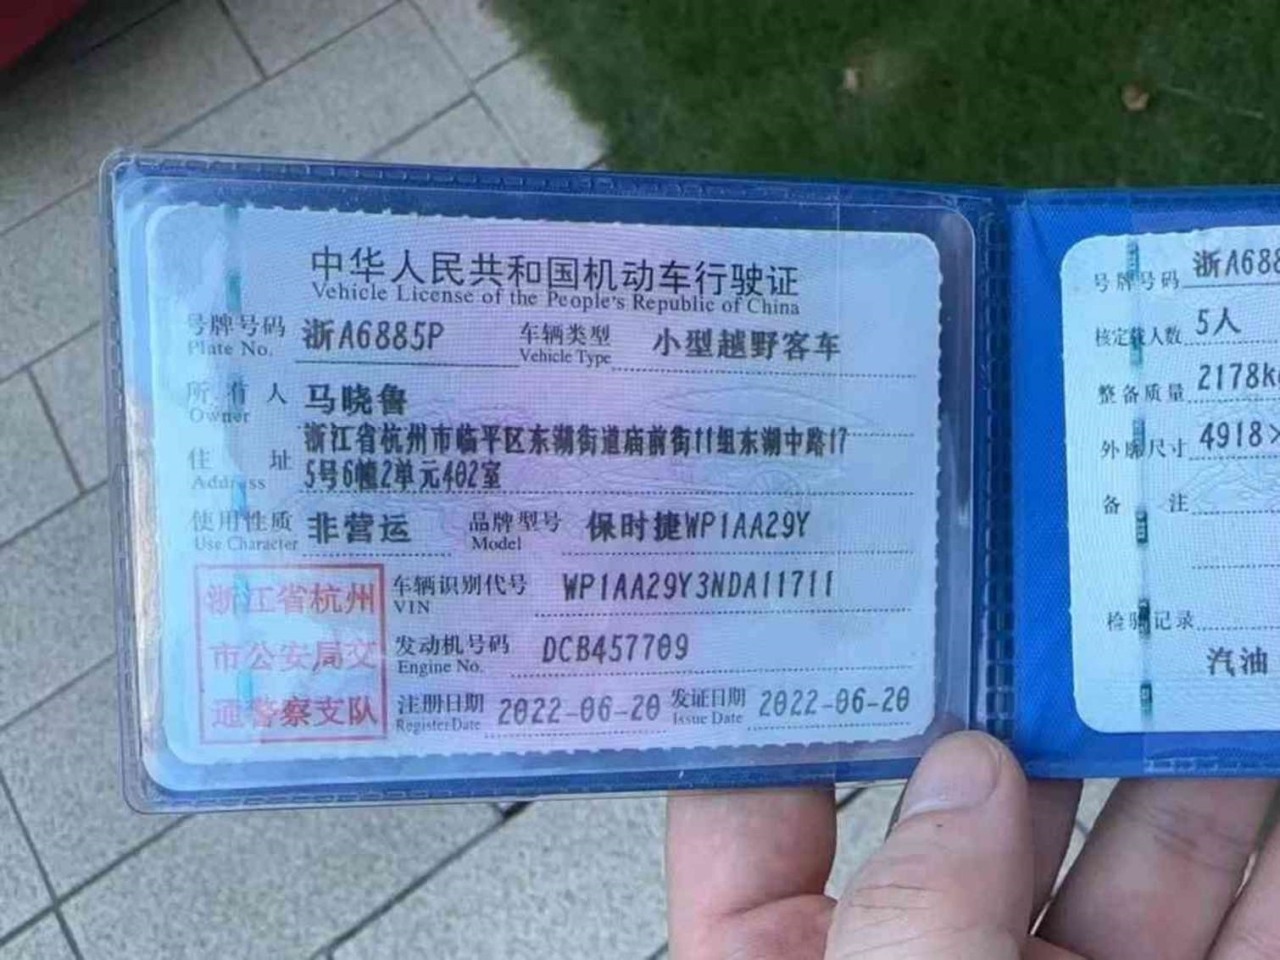 中华人民共和国机动车行驶证
Vehicle License of the People's Republic of China
号牌号码 浙A6885P 车辆类型 小型越野客车
Plate No. Vehicle Type
所有人 马晓鲁
Owner
浙江省杭州市临平区东湖街道庙前街11组东湖中路17
住址 5号6幢2单元402室
Address
使用性质 非营运 品牌型号 保时捷WP1AA29Y
Use Character Model
浙江省杭州
市公安局交
通警察支队
车辆识别代号 WP1AA29Y3NDA11711
VIN
发动机号码 DCB457709
Engine No.
注册日期 2022-06-20 发证日期 2022-06-20
Register Date Issue Date
号牌号码 浙A688
核定载人数 5人
整备质量 2178k
外廓尺寸 4918×
备注
检验记录
汽油